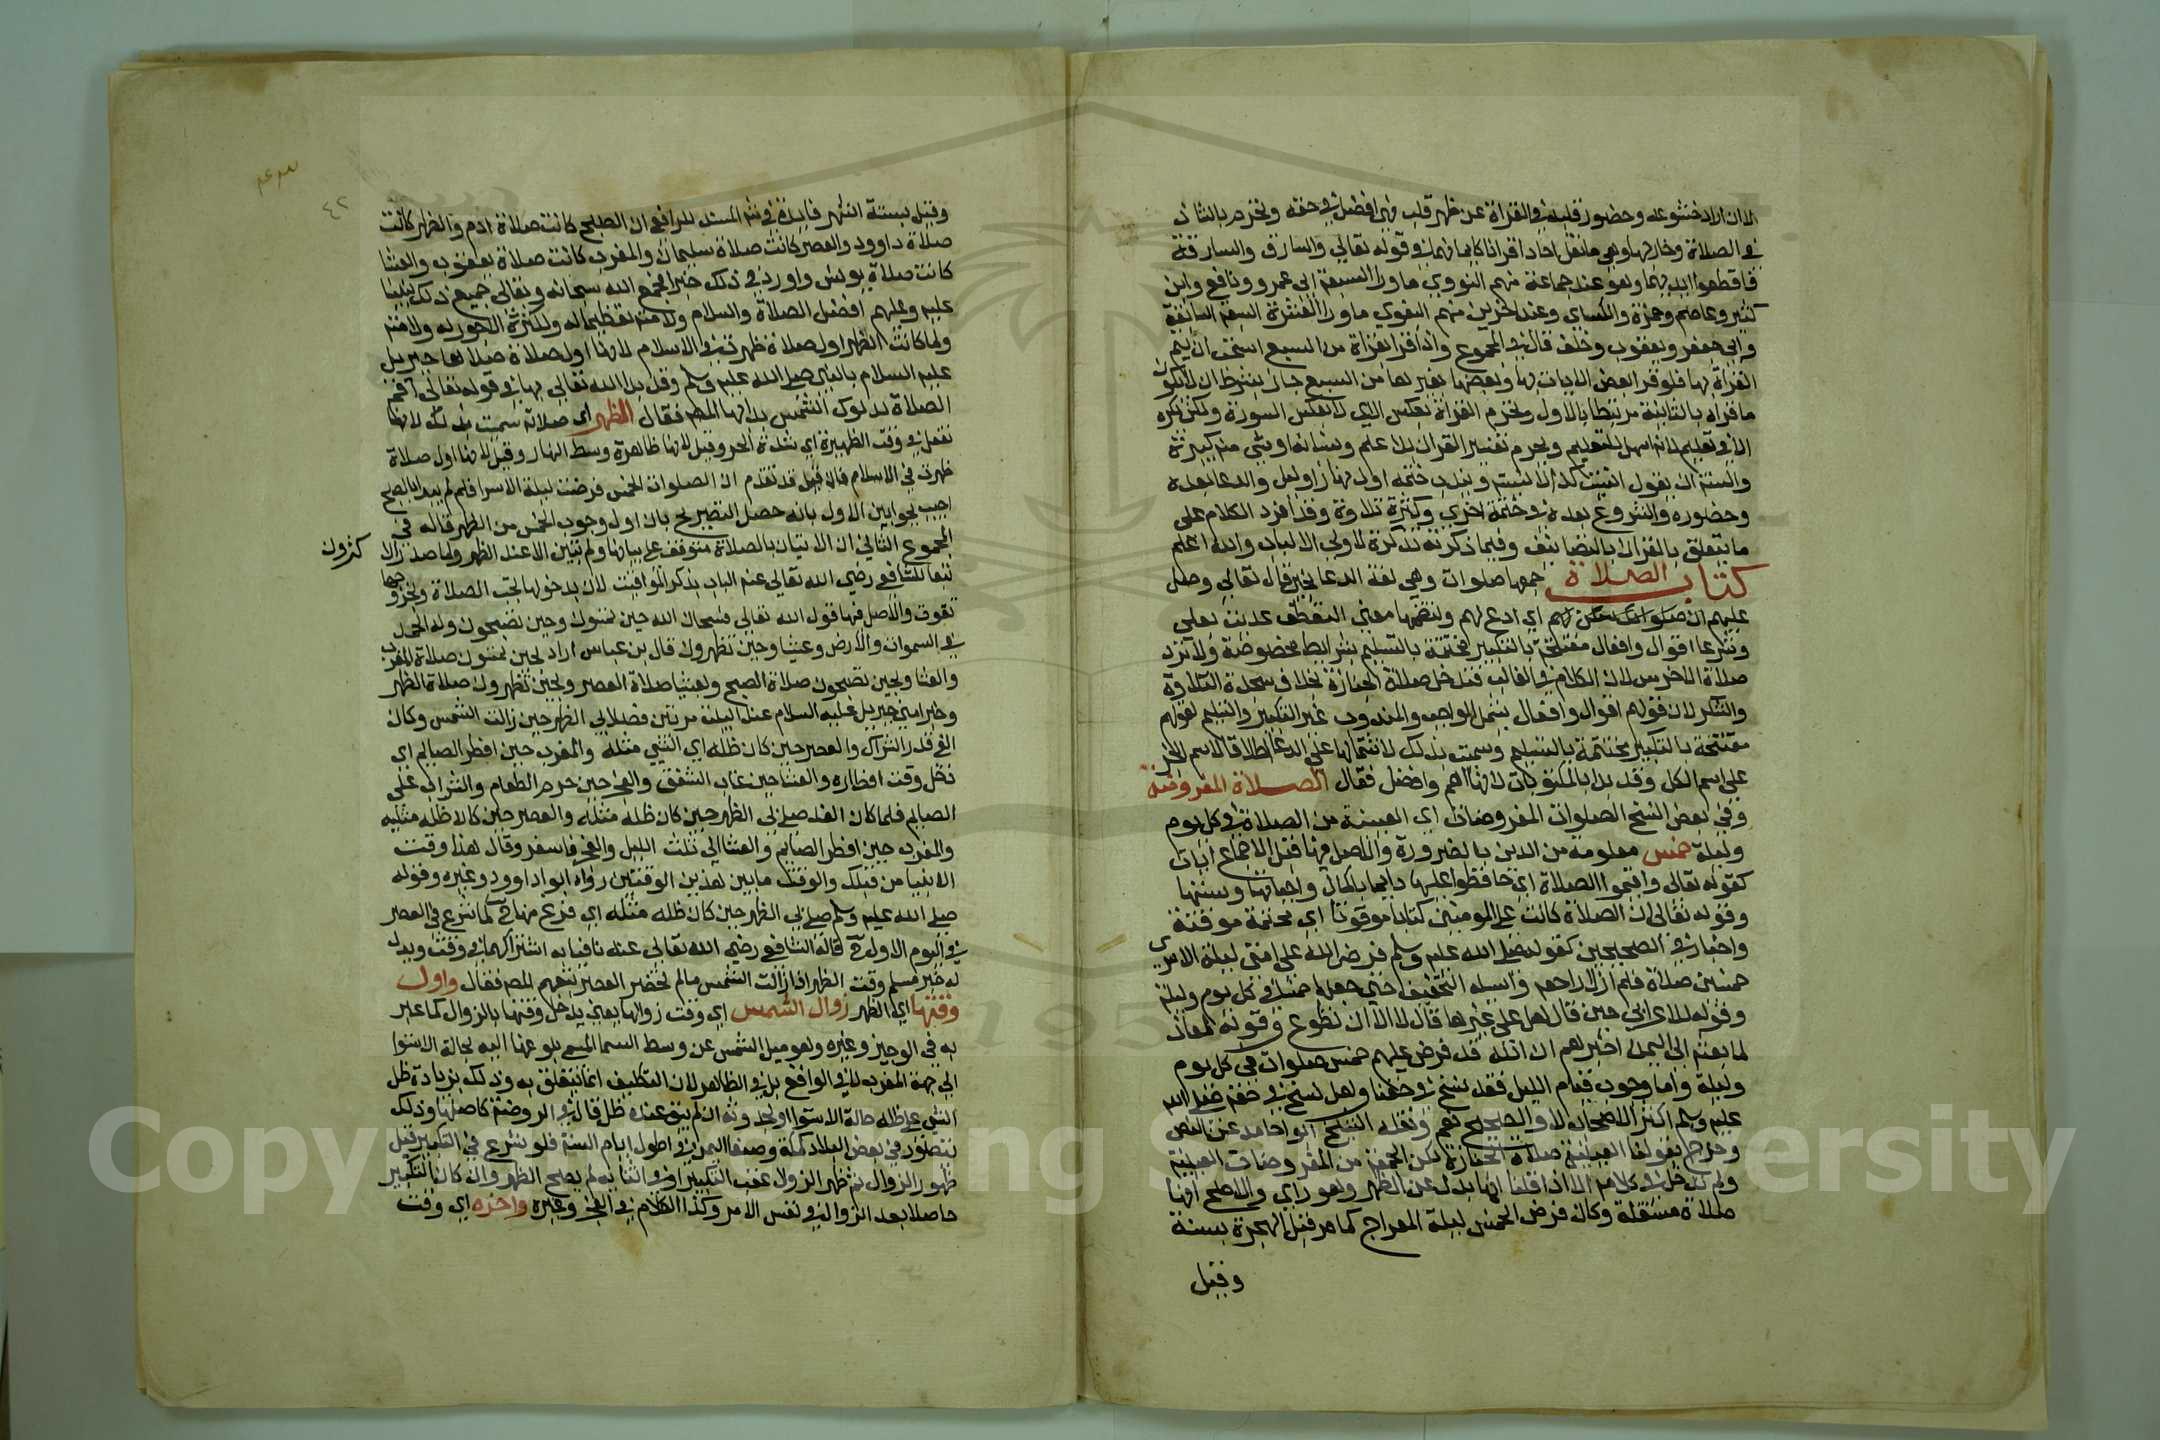 الا ان زاد خشوعه وحضور قلبه في القراة عن ظهر قلب فهي افضل في حقه وتحرم بالشاذ
في الصلاة وخارجها وهي ما نقل احاد اقرانا كايمانهما في قوله تعالي والسارق والسارقة
فاقطعوا ايديهما وهو عند جماعة منهم النووي ما ورا السبعة ابي عمرو ونافع وابن
كثير وعاصم وحمزة والكساي وعند اخرين منهم البغوي ما ورا العشرة السبعة السابقة
وابي جعفر ويعقوب وخلف قال في المجموع واذا قرا بقراة من السبع استحب ان يتم
القراة بها فلو قرا بعض الايات بها وبعضها بغيرها من السبع جاز بشرط ان لا يكون
ما قراه بالثانية مرتبطا بالاول وتحرم القراة بعكس الاي لا بعكس السور ولكن تكره
الا في تعليم لانه اسهل للتعليم ويحرم تفسير القران بلا علم ونسيانه او شي منه كبيرة
والسنة ان يقول انسيت كذا لا نسيته ويندب ختمه اول نهار او ليل والدعا بعده
وحضوره والشروع بعده في ختمة اخري وكثرة تلاوته وقد افرد الكلام علي
ما يتعلق بالقران بالتصانيف وفيما ذكرته تذكرة لاولي الالباب والله اعلم
كتاب الصلاة جمعها صلوات وهي لغة الدعا بخير قال تعالي وصل
عليهم ان صلواتك سكن لهم اي ادع لهم ولتضمنها معني التعطف عديت بعلي
وشرعا اقوال وافعال مفتتحة بالتكبير مختتمة بالتسليم بشرايط مخصوصة ولا ترد
صلاة الاخرس لان الكلام في الغالب فتدخل صلاة الجنازة بخلاف سجدة التلاوة
والشكر لان قولهم اقوال وافعال يشمل الواجب والمندوب غير التكبير والتسليم لقولهم
مفتتحة بالتكبير مختتمة بالتسليم وسميت بذلك لاشتمالها علي الدعا اطلاقا لاسم الجز
علي اسم الكل وقد بدا بالمكتوبات لانها اهم وافضل فقال الصلاة المفروضة
وفي بعض النسخ الصلوات المفروضات اي العينية من الصلاة في كل يوم
وليلة خمس معلومة من الدين بالضرورة والاصل فيها قبل الاجماع ايات
كقوله تعالى واقيموا الصلاة اي حافظوا عليها دايما باكمال واجباتها وسننها
وقوله تعالي ان الصلاة كانت علي المومنين كتابا موقوتا اي محتمة موقتة
واخبار في الصحيحين كقوله صلي الله عليه وسلم فرض الله علي امتي ليلة الاسري
خمسين صلاة فلم ازل اراجعه واسيله التخفيف حتي جعلها خمسا في كل يوم وليلة
وقوله للاعرابي حين قال هل علي غيرها قال لا الا ان تطوع وقوله لمعاذ
لما بعثه الي اليمن اخبرهم ان الله قد فرض عليهم خمس صلوات في كل يوم
وليلة واما وجوب قيام الليل فقد نسخ في حقنا وهل نسخ في حقه صلي الله
عليه وسلم اكثر الاصحاب لا والصحيح نعم ونقله الشيخ ابو حامد عن النص
وخرج بقولنا العينية صلاة الجنازة لكن الجمعة من المفروضات العينية
ولم تدخل في كلامه الا اذا قلنا انها بدل عن الظهر وهو راي والاصح انها
صلاة مستقلة وكان فرض الخمس ليلة المعراج كما مر قبل الهجرة بسنة
وقيل
٤٢
وقيل بستة اشهر فايدة في شرح المسند للرافعي ان الصبح كانت صلاة ادم والظهر كانت
صلاة داوود والعصر كانت صلاة سليمان والمغرب كانت صلاة يعقوب والعشا
كانت صلاة يونس واورد في ذلك خبرا فجمع الله سبحانه وتعالي جميع ذلك لنبينا
عليه وعليهم افضل الصلاة والسلام ولامته تعظيما له ولكثرة الاجور له ولامته
ولما كانت الظهر اول صلاة ظهرت في الاسلام لانها اول صلاة صلاها جبريل
عليه السلام بالنبي صلي الله عليه وسلم وقد بدا الله تعالي بها في قوله تعالي اقم
الصلاة لدلوك الشمس بدا بها المصنف فقال الظهر اي صلاته سميت بذلك لانها
تفعل في وقت الظهيرة اي شدة الحر وقيل لانها ظاهرة وسط النهار وقيل لانها اول صلاة
ظهرت في الاسلام فان قيل قد تقدم ان الصلوات الخمس فرضت ليلة الاسرا فلم لم يبدا بالصبح
اجيب بجوابين الاول بانه حصل التصريح بان اول وجوب الخمس من الظهر قاله في
المجموع الثاني ان الاتيان بالصلاة متوقف علي بيانها ولم تتبين الا عند الظهر ولما صدر الا
كثرون
تبعا للشافعي رضي الله تعالي عنه الباب بذكر المواقيت لان بدخولها تجب الصلاة وبخروجها
تفوت والاصل فيها قول الله تعالي فسبحان الله حين تمسون وحين تصبحون وله الحمد
في السموات والارض وعشيا وحين تظهرون قال بن عباس اراد بحين تمسون صلاة المغرب
والعشا وبحين تصبحون صلاة الصبح وبعشيا صلاة العصر وبحين تظهرون صلاة الظهر
وخبر امني جبريل عليه السلام عند البيت مرتين فصلي بي الظهر حين زالت الشمس وكان
الفي قدر الشراك والعصر حين كان ظله اي الشي مثله والمغرب حين افطر الصايم اي
دخل وقت افطاره والعشا حين غاب الشفق والفجر حين حرم الطعام والشراب علي
الصايم فلما كان الغد صلي بي الظهر حين كان ظله مثله والعصر حين كان ظله مثليه
والمغرب حين افطر الصايم والعشا الي ثلث الليل والفجر فاسفر وقال هذا وقت
الانبيا من قبلك والوقت ما بين هذين الوقتين رواه ابو داوود وغيره وقوله
صلي الله عليه وسلم صلي بي الظهر حين كان ظله مثله اي فرغ منها ح كما شرع في العصر
في اليوم الاول ح قاله الشافعي رضي الله تعالي عنه نافيا به اشتراكهما في وقت ويدل
له خبر مسلم وقت الظهر اذا زالت الشمس ما لم تحضر العصر نبههم المصنف فقال واول
وقتها اي الظهر زوال الشمس اي وقت زوالها يعني يدخل وقتها بالزوال كما عبر
به في الوجيز وغيره وهو ميل الشمس عن وسط السما المسمي بلوغها اليه بحالة الاستوا
الي جهة المغرب لا في الواقع بل في الظاهر لان التكليف انما يتعلق به وذلك بزيادة ظل
الشي علي ظله حالة الاستوا او بحدوثه ان لم يبق عنده ظل قال في الروضة كاصلها وذلك
يتصور في بعض البلاد كمكة وصنعا اليمن في اطول ايام السنة فلو شرع في التكبير قبل
ظهور الزوال ثم ظهر الزوال عقب التكبير او في اثنايه لم يصح الظهر وان كان التكبير
حاصلا بعد الزوال في نفس الامر وكذا الكلام في الفجر وغيره واخره اي وقت